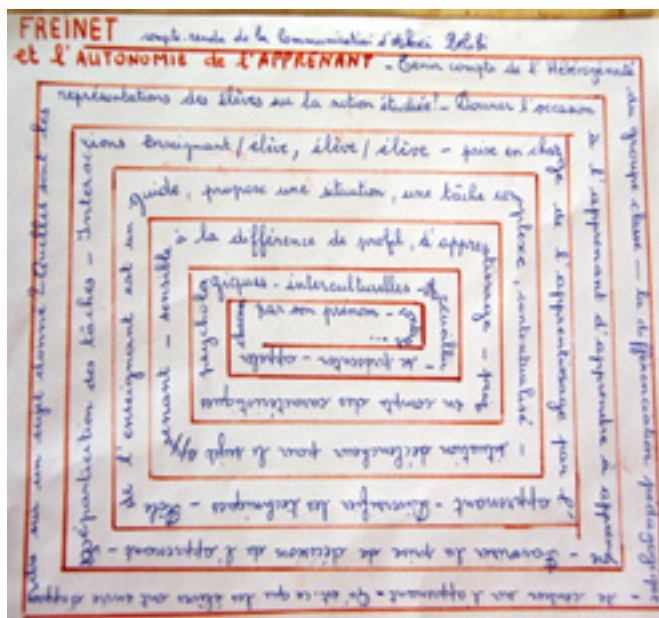 FREINET compte-rendu de la Communication d'
et l'AUTONOMIE de l'APPRENANT - Tenir compte de l'Hétérogénéité
du groupe classe - la différenciation pédagogique -
se centrer sur l'apprenant = Qu'est-ce qui les élèves ont envie d'appren
dre sur un sujet donné? Quelles sont les
représentations des élèves sur la notion étudiée! - Donner l'occasion
à l'apprenant d'apprendre à apprendre
- favoriser la prise de décision de l'apprenant -
Répartition des tâches - Interac
tions Enseignant/élève, élève/élève - prise en char
ge de l'apprentissage par l'
apprenant - Diversifier les techniques - Rôle
de l'enseignant est un
guide, propose une situation, une tâche com
plexe, contextualisé
- situation déclencheur pour le sujet app
renant - sensible
à la différence de profil, d'appren
tissage - pris
en compte des caractéristiques
psycholo
giques - interculturelles - Accueillir
- se présenter - appeler
chacun
par son prénom -
...